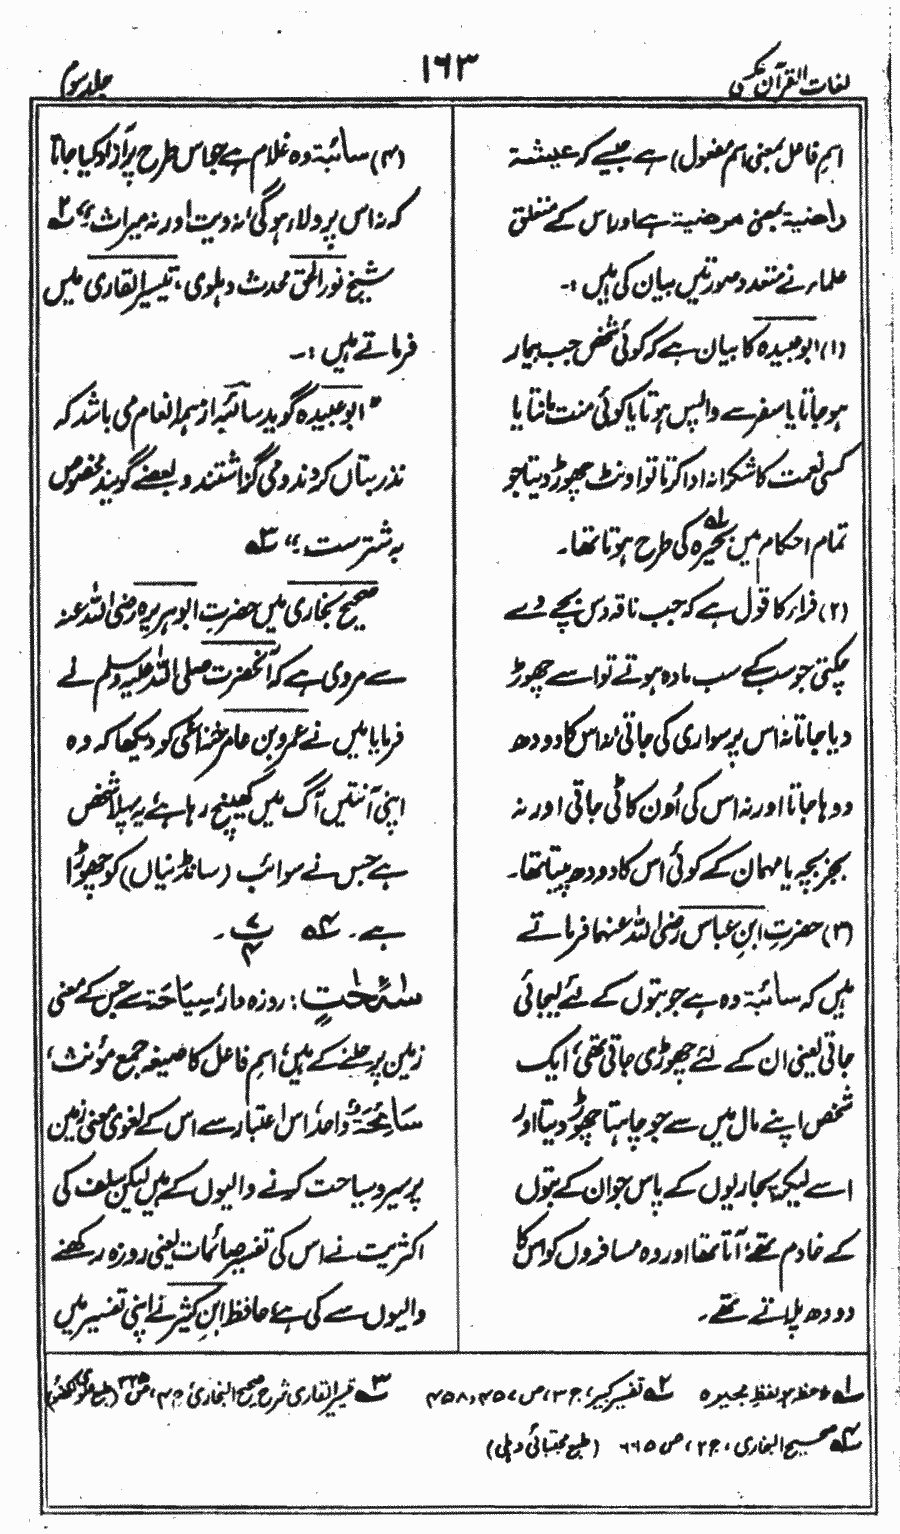 لغات القرآن مکمل
۱۶۳
جلد سوم
اسمِ فاعل بمعنی اسمِ مفعول) ہے جیسے کہ عیشۃ
راضیۃ بمعنی مرضیۃ ہے اور اس کے متعلق
علماء نے متعدد صورتیں بیان کی ہیں :۔
(۱) ابوعبیدہ کا بیان ہے کہ کوئی شخص جب بیمار
ہو جاتا یا سفر سے واپس ہوتا یا کوئی منت مانتا یا
کسی نعمت کا شکرانہ ادا کرتا تو اونٹ چھوڑ دیتا جو
تمام احکام میں بحیرہ لہ کی طرح ہوتا تھا۔
(۲) فراء کا قول ہے کہ جب ناقہ دس بچے دے
چکتی جو سب کے سب مادہ ہوتے تو اسے چھوڑ
دیا جاتا نہ اس پر سواری کی جاتی نہ اس کا دودھ
دوہا جاتا اور نہ اس کی اُون کاٹی جاتی اور نہ
بجز بچہ یا مہمان کے کوئی اس کا دودھ پیتا تھا۔
(۳) حضرتِ ابنِ عباس رضی اللہ عنہما فرماتے
ہیں کہ سائبۃ وہ ہے جو بتوں کے لئے لیجائی
جاتی یعنی ان کے لئے چھوڑی جاتی تھی، ایک
شخص اپنے مال میں سے جو چاہتا چھوڑ دیتا اور
اسے لیکر پجاریوں کے پاس جو ان کے بتوں
کے خادم تھے، آتا تھا اور وہ مسافروں کو اس کا
دودھ پلاتے تھے۔
(۴) سائبۃ وہ غلام ہے جو اس طرح پر آزاد کیا جاتا
کہ نہ اس پر ولاء ہوگی نہ دیت اور نہ میراث،، ۲ہ
شیخ نور الحق محدث دہلوی، تیسیر القاری میں
فرماتے ہیں :۔
” ابوعبیدہ گوید سائبہ از ہمہ انعام می باشد کہ
نذر بتاں کردند و می گزاشتند و بعضے گویند مخصوص
بہ شتر ست،، ۳ہ
صحیح بخاری میں حضرت ابوہریرہ رضی اللہ عنہ
سے مروی ہے کہ آنحضرت صلی اللہ علیہ وسلم نے
فرمایا میں نے عمرو بن عامر خزاعی کو دیکھا کہ وہ
اپنی آنتیں آگ میں کھینچ رہا ہے، یہ پہلا شخص
ہے جس نے سوائب (سانڈنیاں) کو چھوڑا
ہے۔ ۴ہ ۷/۴ ۔
سٰئِحٰتٍ: روزہ دار، سِیَاحَۃ سے جس کے معنی
زمین پر چلنے کے ہیں، اسمِ فاعل کا صیغہ جمع مؤنث،
سَائِحَۃٌ واحد، اس اعتبار سے اس کے لغوی معنی زمین
پر سیر و سیاحت کرنے والیوں کے ہیں لیکن سلف کی
اکثریت نے اس کی تفسیر صائمات یعنی روزہ رکھنے
والیوں سے کی ہے، حافظ ابن کثیر نے اپنی تفسیر میں
۱ہ ملاحظہ ہو لفظ بحیرہ ۲ہ تفسیر کبیر، ج ۳، ص ۴۵۷، ۴۵۸ ۳ہ تیسیر القاری شرح صحیح البخاری، ج ۴، ص ۲۲۵ (طبع علوی لکھنؤ)
۴ہ صحیح البخاری، ج ۲، ص ۶۶۵ (طبع مجتبائی دہلی)